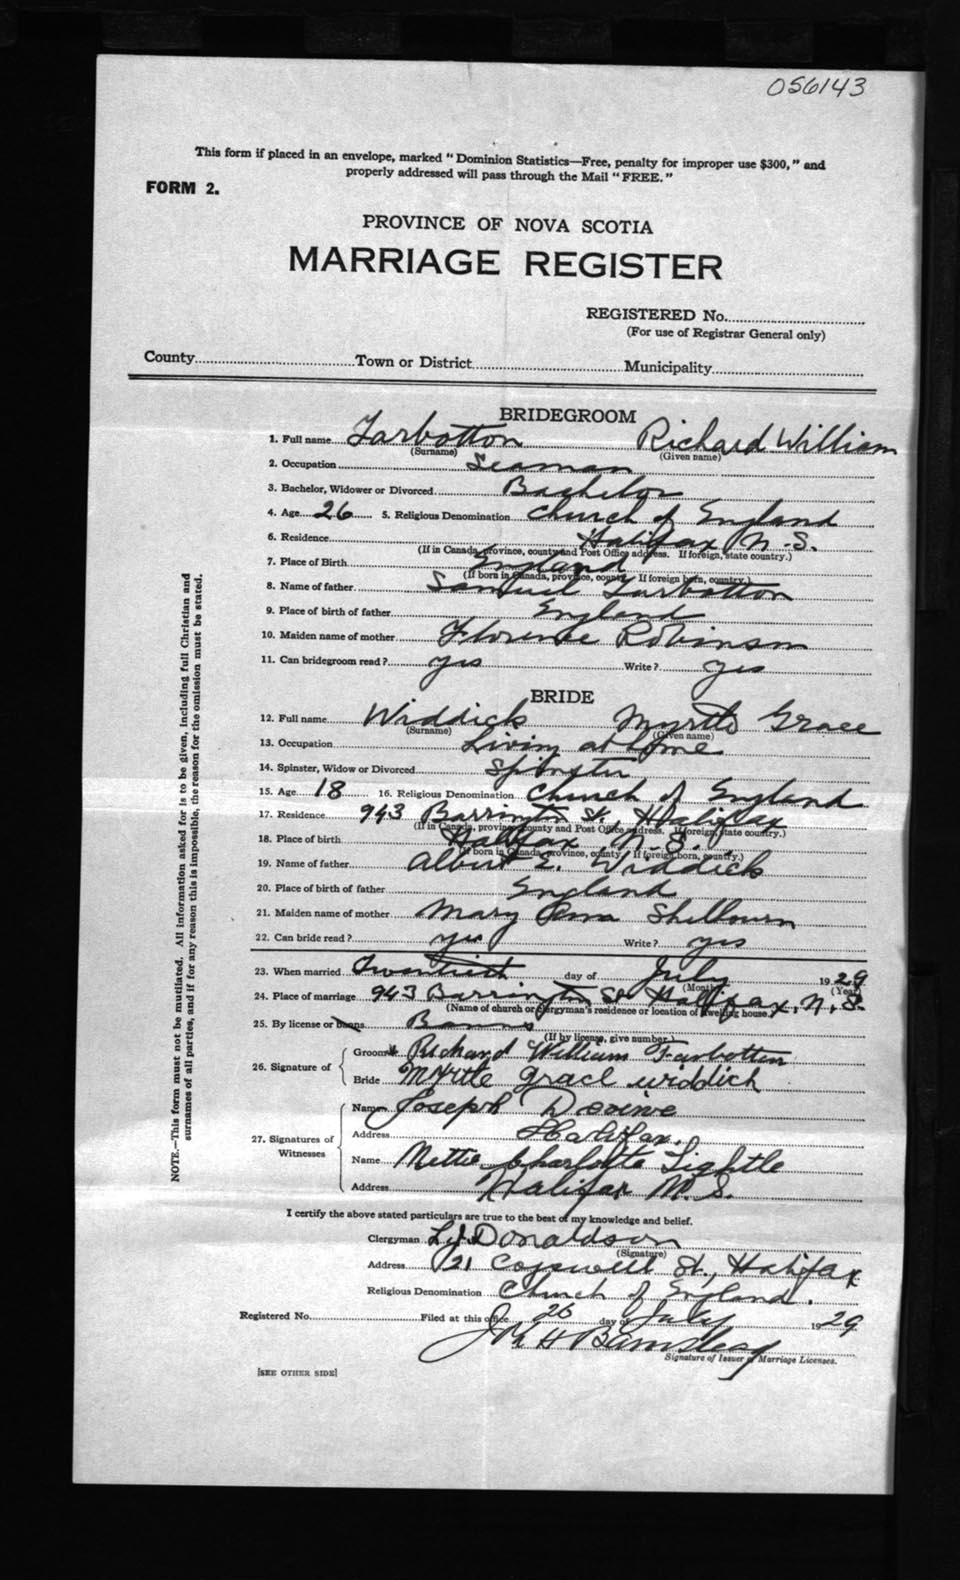 056143
This form if placed in an envelope, marked "Dominion Statistics—Free, penalty for improper use $300," and
properly addressed will pass through the Mail "FREE."
FORM 2.
PROVINCE OF NOVA SCOTIA
MARRIAGE REGISTER
REGISTERED No.
(For use of Registrar General only)
County Town or District Municipality
BRIDEGROOM
1. Full name Tarbotton Richard William
(Surname) (Given name)
2. Occupation Seaman
3. Bachelor, Widower or Divorced Bachelor
4. Age 26 5. Religious Denomination Church of England
6. Residence Halifax N.S.
(If in Canada, province, county and Post Office address. If foreign, state country.)
7. Place of Birth England
(If born in Canada, province, county. If foreign born, country.)
8. Name of father Samuel Tarbotton
9. Place of birth of father England
10. Maiden name of mother Florence Robinson
11. Can bridegroom read? yes Write? yes
BRIDE
12. Full name Widdick Myrtle Grace
(Surname) (Given name)
13. Occupation Living at home
14. Spinster, Widow or Divorced Spinster
15. Age 18 16. Religious Denomination Church of England
17. Residence 943 Barrington St., Halifax
(If in Canada, province, county and Post Office address. If foreign, state country.)
18. Place of birth Halifax, N.S.
(If born in Canada, province, county. If foreign born, country.)
19. Name of father Albert E. Widdick
20. Place of birth of father England
21. Maiden name of mother Mary Shelbourn
22. Can bride read? yes Write? yes
23. When married Twentieth day of July 1929
(Month) (Year)
24. Place of marriage 943 Barrington St Halifax, N.S.
(Name of church or clergyman's residence or location of dwelling house.)
25. By license or banns Banns
(If by license, give number)
26. Signature of Groom Richard William Tarbotton
Bride Myrtle Grace Widdick
27. Signatures of Witnesses
Name Joseph Devine
Address Halifax.
Name Nettie Charlotte Lightle
Address Halifax N.S.
I certify the above stated particulars are true to the best of my knowledge and belief.
Clergyman L.J. Donaldson
(Signature)
Address 121 Cogswell St., Halifax
Religious Denomination Church of England.
Registered No. Filed at this office 26 day of July 1929
Signature of Issuer of Marriage Licenses.
[SEE OTHER SIDE]
NOTE.—This form must not be mutilated. All information asked for is to be given, including full Christian and
surnames of all parties, and if for any reason this is impossible, the reason for the omission must be stated.